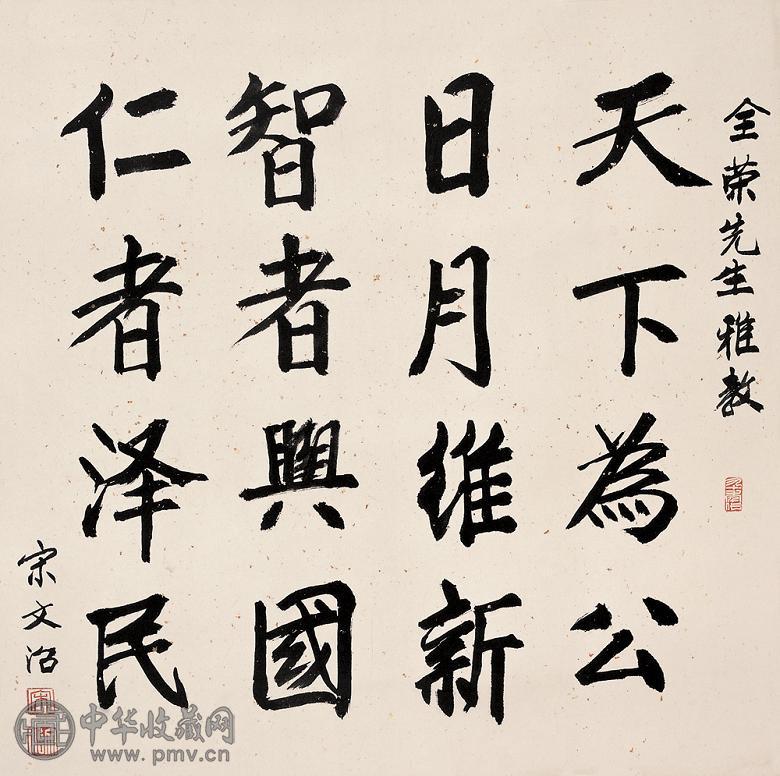 全荣先生雅教
天下為公
日月维新
智者興國
仁者泽民
宋文治
中华收藏网
www.pmv.cn